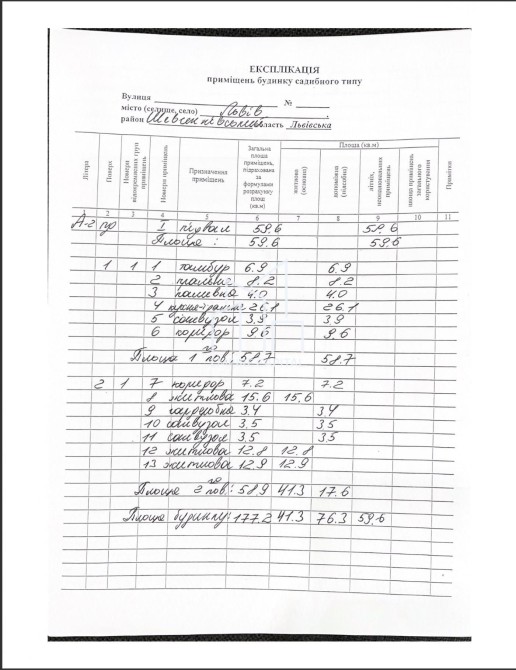 ЕКСПЛІКАЦІЯ
приміщень будинку садибного типу
Вулиця № 
місто (селище, село) Львів
район Шевченківський область Львівська
Літера Поверх Номери відокремлених груп приміщень Номери приміщень Призначення приміщень Загальна площа приміщень, підрахована за формулами розрахунку площ (кв.м) Площа (кв.м) житлова (основна) допоміжна (підсобна) площа приміщень загального користування Примітки
1 2 3 4 5 6 7 8 9 10 11
А-2 пд I підвал 59.6 59.6
Площа : 59.6 59.6
1 1 1 тамбур 6.9 6.9
2 8.2 8.2
3 паливна 4.0 4.0
4 26.1 26.1
5 санвузол 3.9 3.9
6 коридор 9.6 9.6
Площа 1 го пов: 58.7 58.7
2 1 7 коридор 7.2 7.2
8 житлова 15.6 15.6
9 гардеробна 3.4 3.4
10 санвузол 3.5 3.5
11 санвузол 3.5 3.5
12 житлова 12.8 12.8
13 житлова 12.9 12.9
Площа 2 го пов: 58.9 41.3 17.6
Площа будинку: 177.2 41.3 76.3 59.6